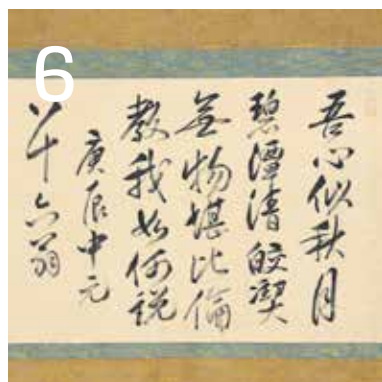 6
吾心似秋月
碧潭清皎潔
無物堪比倫
教我如何説
庚辰中元
八十六翁